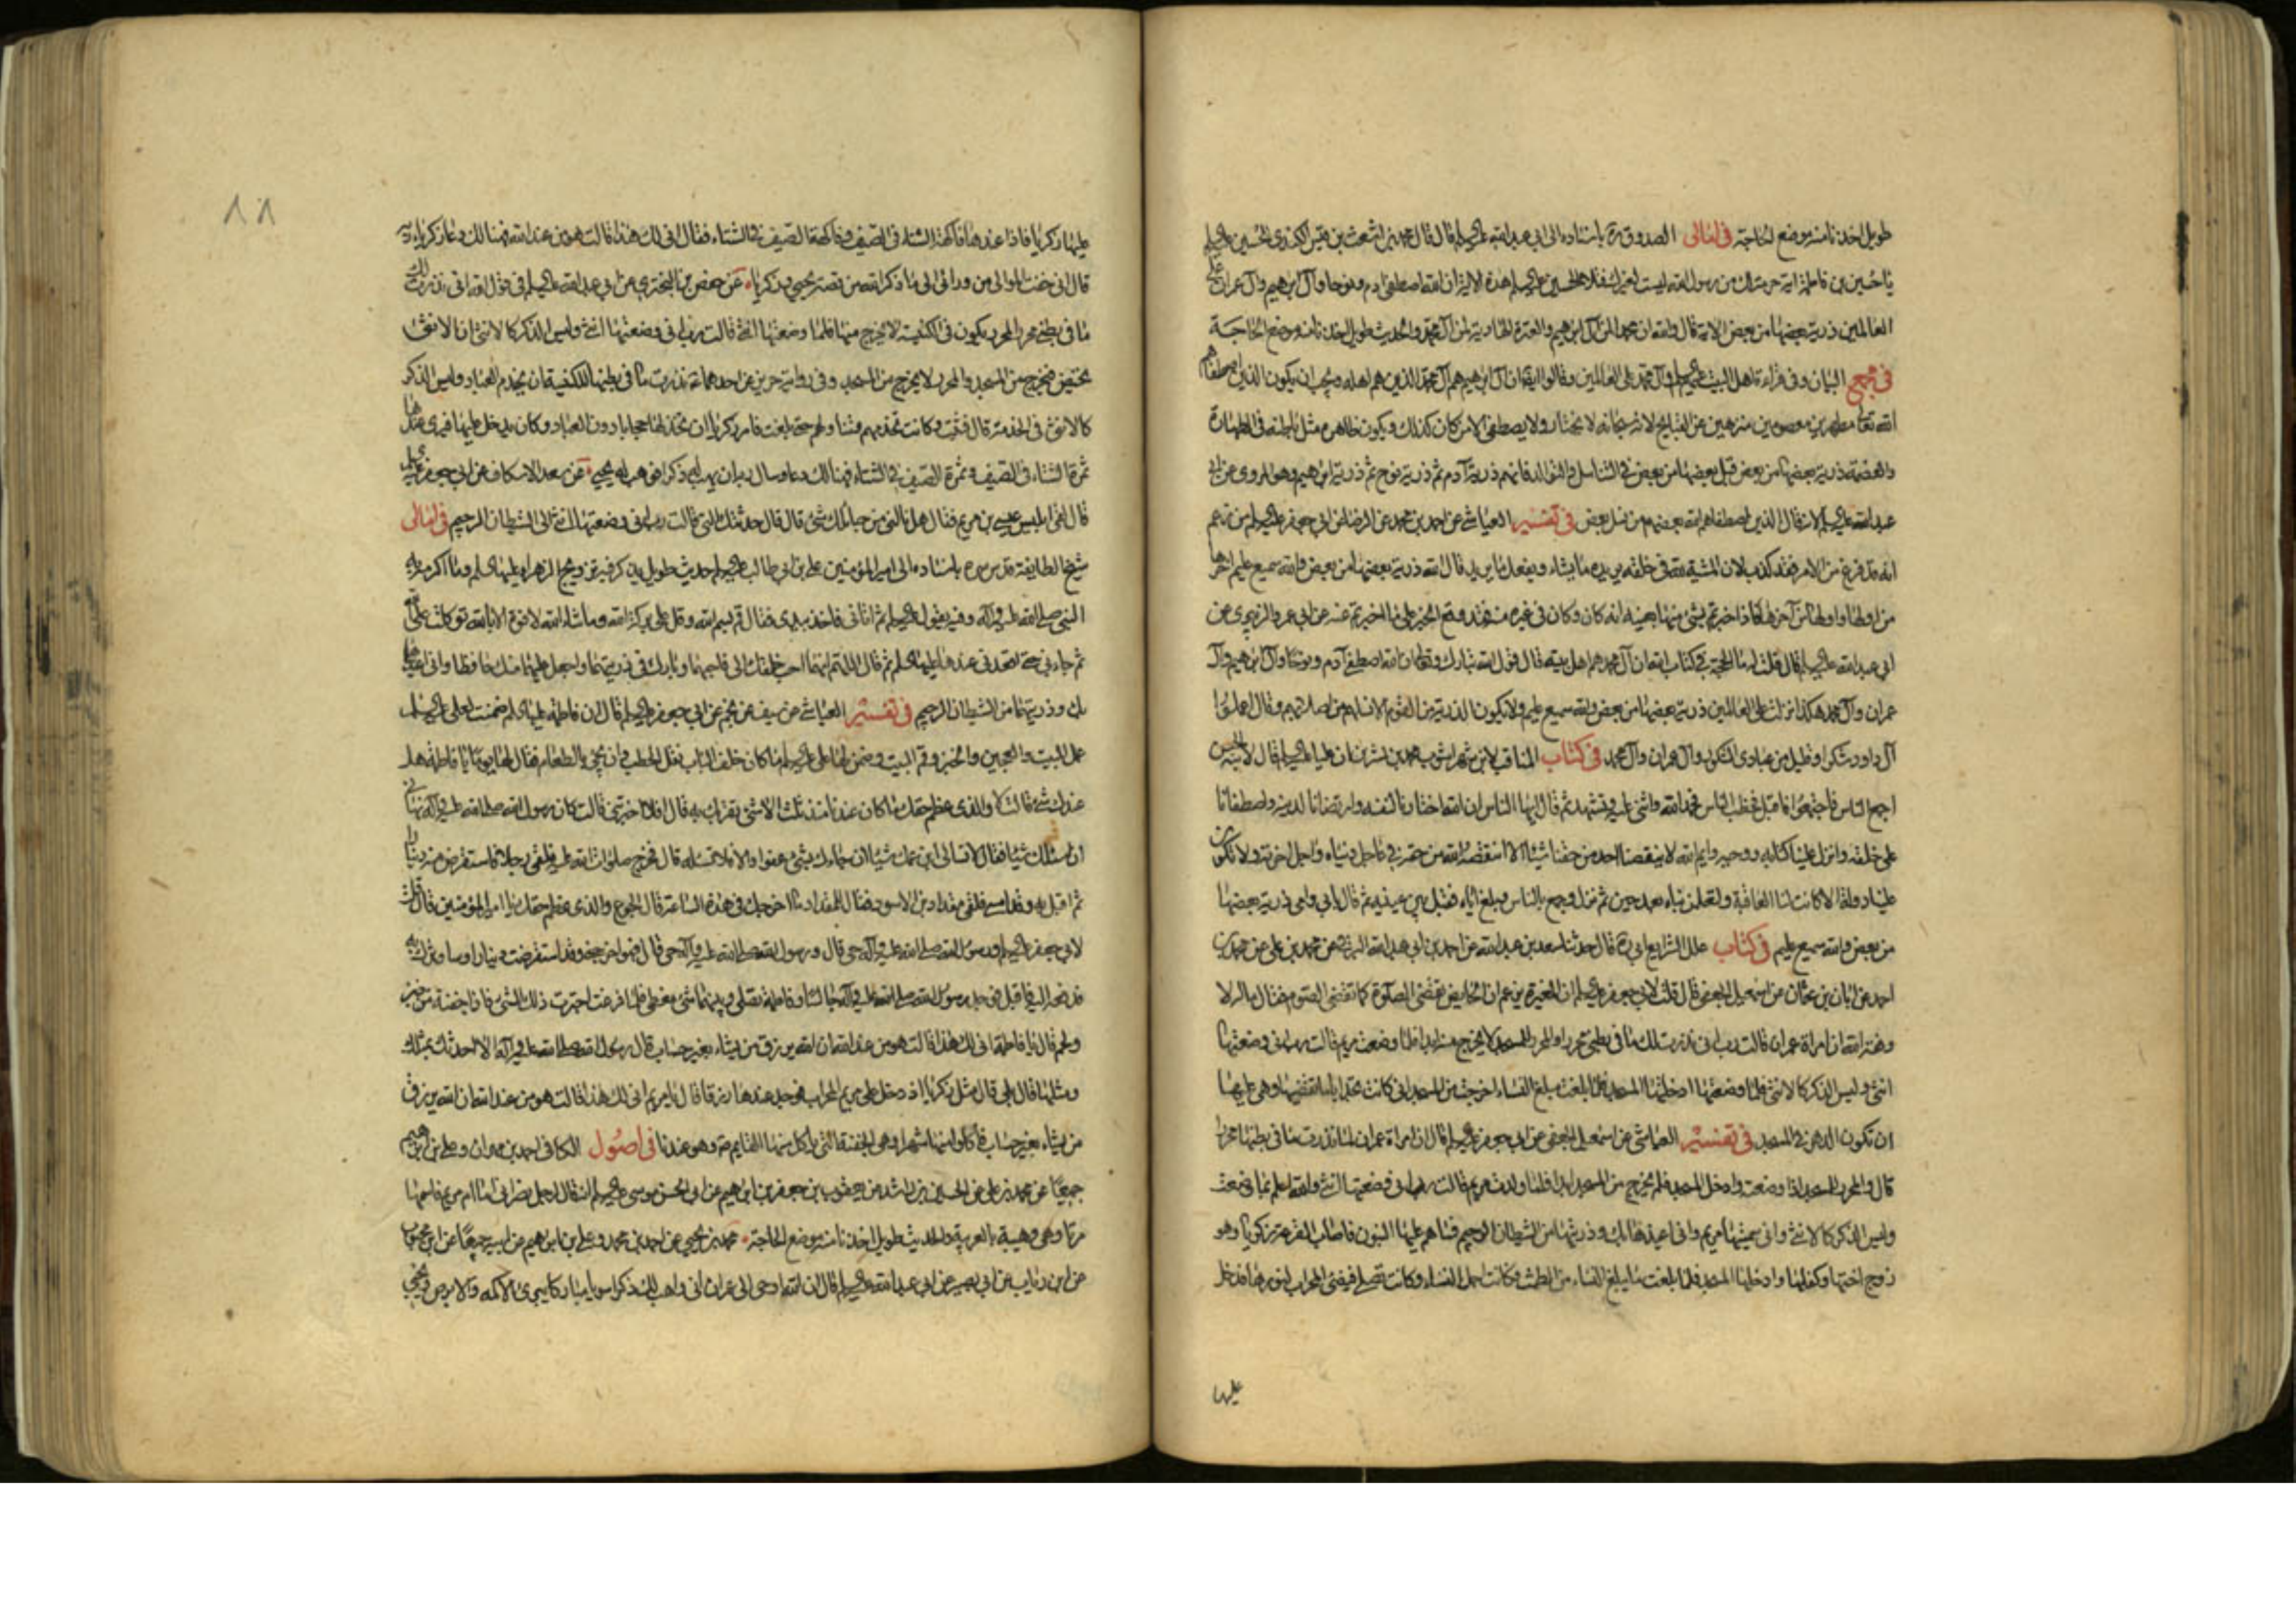 طويل اخذنا منه موضع الحاجة في امالى الصدوق ره باسناده الى ابي عبد الله عليه السلم قال قال محمد بن اشعث بن قيس الكندى للحسين عليه السلم
يا حسين بن فاطمة اية حرمة لك من رسول الله ليست لغيرك فتلا الحسين عليه السلم هذه الاية ان الله اصطفى ادم ونوحا وآل ابرهيم وآل عمران على
العالمين ذرية بعضها من بعض الاية قال والله ان محمدا لمن آل ابرهيم والعترة الهادية لمن آل محمد والحديث طويل اخذنا منه موضع الحاجة
في مجمع البيان وفى قراءة اهل البيت عليهم السلم وآل محمد على العالمين وقالوا ايضا ان آل ابرهيم هم آل محمد الذين هم اهله ويجب ان يكون الذين اصطفاهم
الله تعالى مطهرين معصومين منزهين عن القبايح لانه سبحانه لا يختار ولا يصطفى الا من كان كذلك ويكون ظاهره مثل باطنه في الطهارة
والعصمة ذرية بعضها من بعض قيل بعضها من بعض في التناسل والتوالد فانهم ذرية آدم ثم ذرية نوح ثم ذرية ابرهيم وهو المروى عن ابي
عبد الله عليه السلم لانه قال الذين اصطفاهم الله بعضهم من نسل بعض في تفسير العياشى عن احمد بن محمد عن الرضا عن ابي جعفر عليه السلم من زعم
انه قد فرغ من الامر فقد كذب لان المشية لله في خلقه يريد ما يشاء ويفعل ما يريد قال الله ذرية بعضها من بعض والله سميع عليم اخرها
من اولها واولها من آخرها فاذا اخبرتم بشئ منها بعينه انه كان وكان في غيره منه فقد وقع الخبر على ما اخبرتم عنه عن ابي عمرو الزبيرى عن
ابي عبد الله عليه السلم قال قلت له ما الحجة في كتاب الله ان آل محمد هم اهل بيته قال قول الله تبارك وتعالى ان الله اصطفى آدم ونوحا وآل ابرهيم وآل
عمران وآل محمد هكذا نزلت على العالمين ذرية بعضها من بعض والله سميع عليم ولا يكون الذرية من القوم الا نسلهم من اصلابهم وقال اعملوا
آل داود شكرا وقليل من عبادى الشكور وآل عمران وآل محمد في كتاب المناقب لابن شهر اشوب قال لابنه الحسن
اجمع الناس فاجتمعوا فاقبل فخطب الناس فحمد الله واثنى عليه وتشهد ثم قال ايها الناس ان الله اختارنا لنفسه وارتضانا لدينه واصطفانا
على خلقه وانزل علينا كتابه ووحيه وايم الله لا ينقصنا احد من حقنا شيئا الا انتقصه الله من حقه في عاجل دنياه واجل اخرته ولا تكون
علينا دولة الا كانت لنا العاقبة ولتعلمن نباه بعد حين ثم نزل وجمع بالناس وبلغ اباه فقبل بين عينيه ثم قال بابي وامى ذرية بعضها
من بعض والله سميع عليم في كتاب علل الشرايع ابي ره قال حدثنا سعد بن عبد الله عن احمد بن ابي عبد الله البرقى عن محمد بن على عن محمد بن
احمد عن ابان بن عثمان عن اسمعيل الجعفى قال قلت لابي جعفر عليه السلم ان المغيرة يزعم ان الحايض تقضى الصلوة كما تقضى الصوم فقال ماله لا
وفقه الله ان امراة عمران قالت رب انى نذرت لك ما في بطنى محررا والمحرر للمسجد لا يخرج منه ابدا فلما وضعت مريم قالت رب انى وضعتها
انثى وليس الذكر كالانثى فلما وضعتها ادخلتها المسجد فلما بلغت مبلغ النساء اخرجت من المسجد انى كانت تجد اياما تقضيها وهى عليها
ان تكون الدهر في المسجد في تفسير العياشى عن اسمعيل الجعفى عن ابي جعفر عليه السلم قال ان امراة عمران لما نذرت ما في بطنها محررا
قال والمحرر للمسجد اذا وضعته وادخل المسجد فلم يخرج من المسجد ابدا فلما ولدت مريم قالت رب انى وضعتها انثى والله اعلم بما وضعت
وليس الذكر كالانثى وانى سميتها مريم وانى اعيذها بك وذريتها من الشيطان الرجيم فساهم عليها النبيون فاصاب القرعة زكريا وهو
زوج اختها وكفلها وادخلها المسجد فلما بلغت ما يبلغ النساء من الطمث وكانت اجمل النساء وكانت تصلى فيضئ المحراب لنورها فدخل
عليها
٨٨
عليها زكريا فاذا عندها فاكهة الشتاء في الصيف وفاكهة الصيف في الشتاء فقال انى لك هذا قالت هو من عند الله فهنالك دعا زكريا ربه
قال انى خفت الموالى من ورائى الى ما ذكر الله من قصة يحيى وزكريا عن حفص بن البخترى عن ابي عبد الله عليه السلم في قول الله انى نذرت لك
ما في بطنى محررا المحرر يكون في الكنيسة لا يخرج منها فلما وضعتها انثى قالت رب انى وضعتها انثى وليس الذكر كالانثى ان الانثى
تحيض فتخرج من المسجد والمحرر لا يخرج من المسجد وفى رواية حريز عن احدهما ع نذرت ما في بطنها للكنيسة ان يخدم العباد وليس الذكر
كالانثى في الخدمة قال فشبت وكانت تخدمهم وتناولهم حتى بلغت فامر زكريا ان تتخذ لها حجابا دون العباد وكان يدخل عليها فيرى عندها
ثمرة الشتاء في الصيف وثمرة الصيف في الشتاء فهنالك دعا وسال ربه ان يهب له ذكرا فوهب له يحيى عن سعد الاسكاف عن ابي جعفر عليه السلم
قال لقى ابليس عيسى بن مريم فقال هل نالنى من حبائلك شئ قال قال جدتك التى قالت رب انى وضعتها انثى الى الشيطان الرجيم في امالى
شيخ الطايفة قدس سره باسناده الى امير المؤمنين على بن ابي طالب عليه السلم حديث طويل يذكر فيه تزويج الزهراء عليها السلم وما اكرمه به
النبي صلى الله عليه وآله وفيه يقول عليه السلم ثم اتانى فاخذ بيدى فقال قم بسم الله وقل على بركة الله وما شاء الله لا قوة الا بالله توكلت على الله
ثم جاء بي حتى اقعدنى عندها عليها السلم ثم قال اللهم انهما احب خلقك الى فاحبهما وبارك في ذريتهما واجعل عليهما منك حافظا وانى اعيذهما
بك وذريتهما من الشيطان الرجيم في تفسير العياشى عن سيف عن نجم عن ابي جعفر عليه السلم قال ان فاطمة عليها السلم ضمنت لعلى عليه السلم
عمل البيت والعجين والخبز وقم البيت وضمن لها على عليه السلم ما كان خلف الباب نقل الحطب وان يجئ بالطعام فقال لها يوما يا فاطمة هل
عندك شئ قالت لا والذى عظم حقك ما كان عندنا منذ ثلث الا شئ نقريك به قال افلا اخبرتنى قالت كان رسول الله صلى الله عليه وآله نهانى
ان اسئلك شيئا فقال لا تسالى ابن عمك شيئا ان جاءك بشئ عفوا والا فلا تسئليه قال فخرج صلوات الله عليه فلقى رجلا فاستقرض منه دينارا
ثم اقبل به وقد امسى فلقى مقداد بن الاسود فقال للمقداد ما اخرجك في هذه الساعة قال الجوع والذى عظم حقك يا امير المؤمنين قال قلت
لابي جعفر عليه السلم ورسول الله صلى الله عليه وآله حى قال ورسول الله صلى الله عليه وآله حى قال فهو اخرجنى وقد استقرضت دينارا وساوثرك به
فدفعه اليه فاقبل فوجد رسول الله صلى الله عليه وآله جالسا وفاطمة تصلى وبينهما شئ مغطى فلما فرغت احضرت ذلك الشئ فاذا جفنة من خبز
ولحم قال يا فاطمة انى لك هذا قالت هو من عند الله ان الله يرزق من يشاء بغير حساب فقال رسول الله صلى الله عليه وآله الا احدثك بمثلك
ومثلها قال بلى قال مثل زكريا اذ دخل على مريم المحراب فوجد عندها رزقا قال يا مريم انى لك هذا قالت هو من عند الله ان الله يرزق
من يشاء بغير حساب فاكلوا منها شهرا وهى الجفنة التى ياكل منها القايم ع وهو عندنا في اصول الكافى احمد بن مهران وعلى بن ابرهيم
جميعا عن محمد بن على عن الحسن بن راشد عن يعقوب بن جعفر بن ابرهيم عن ابي الحسن موسى عليه السلم انه قال لرجل نصرانى اما ام مريم فاسمها
مرثا وهى وهيبة بالعربية والحديث طويل اخذنا منه موضع الحاجة محمد بن يحيى عن احمد بن محمد وعلى بن ابرهيم عن ابيه جميعا عن ابن محبوب
عن ابن رئاب عن ابي بصير عن ابي عبد الله عليه السلم قال ان الله اوحى الى عمران انى واهب لك ذكرا سويا مباركا يبرئ الاكمه والابرص ويحيى